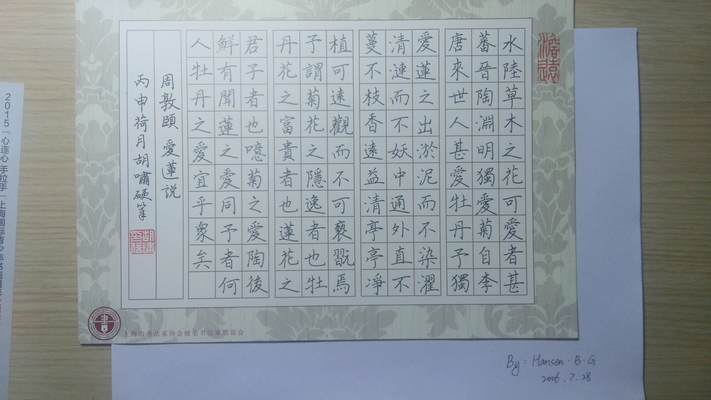 水陸草木之花可愛者甚
蕃晉陶淵明獨愛菊自李
唐來世人甚愛牡丹予獨
愛蓮之出淤泥而不染濯
清漣而不妖中通外直不
蔓不枝香遠益清亭亭凈
植可遠觀而不可褻翫焉
予謂菊花之隱逸者也牡
丹花之富貴者也蓮花之
君子者也噫菊之愛陶後
鮮有聞蓮之愛同予者何
人牡丹之愛宜乎衆矣
周敦頤 愛蓮說
丙申荷月胡嘯硬筆
澹遠
上海市书法家协会硬笔书法家联谊会
2015「心连心 手拉手」上海国际青少年书画
By: Hansen·B·G
2016.7.28